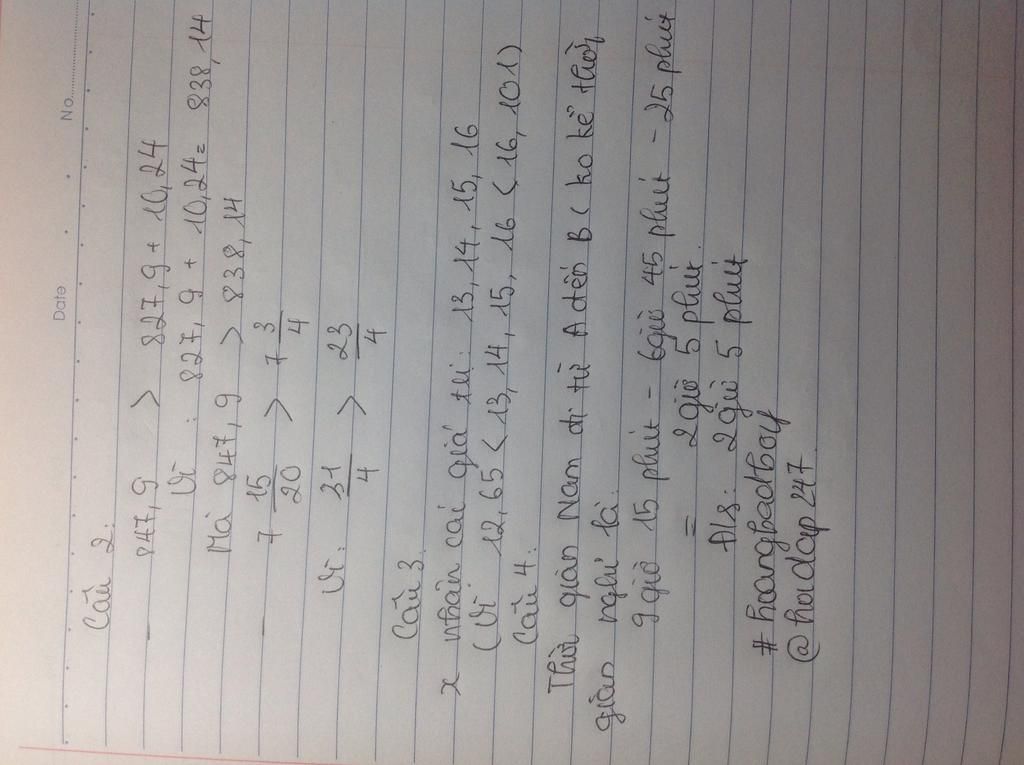 Date No.
Câu 2:
847,9 > 827,9 + 10,24
Vì : 827,9 + 10,24 = 838,14
Mà 847,9 > 838,14
7 15/20 > 7 3/4
Vì : 31/4 > 23/4
Câu 3:
x nhận cái giá trị : 13, 14, 15, 16
(Vì 12,65 < 13, 14, 15, 16 < 16,101)
Câu 4:
Thời gian Nam đi từ A đến B ( ko kể thời
gian nghỉ là:
9 giờ 15 phút - 6 giờ 45 phút - 25 phút
= 2 giờ 5 phút.
Đ/s: 2 giờ 5 phút
# hoangbadboy
@hoidap247